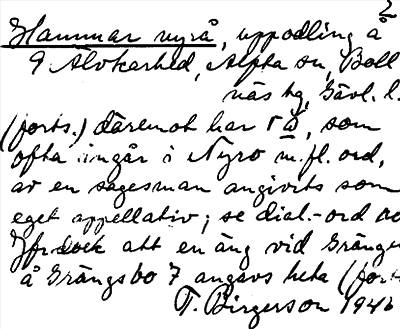 2
Hammar nyrå, uppodling å
9 Älvkarhed, Alfta sn, Boll
näs tg, Gävl. l.
(forts.) däremot har r å, som
ofta ingår i Nyro m. fl. ord,
av en sagesman angivits som
eget appellativ; se dial.-ord
Jfr dock att en äng vid Gränge
å Grängsbo 7 angavs heta (forts
T. Birgerson 1946